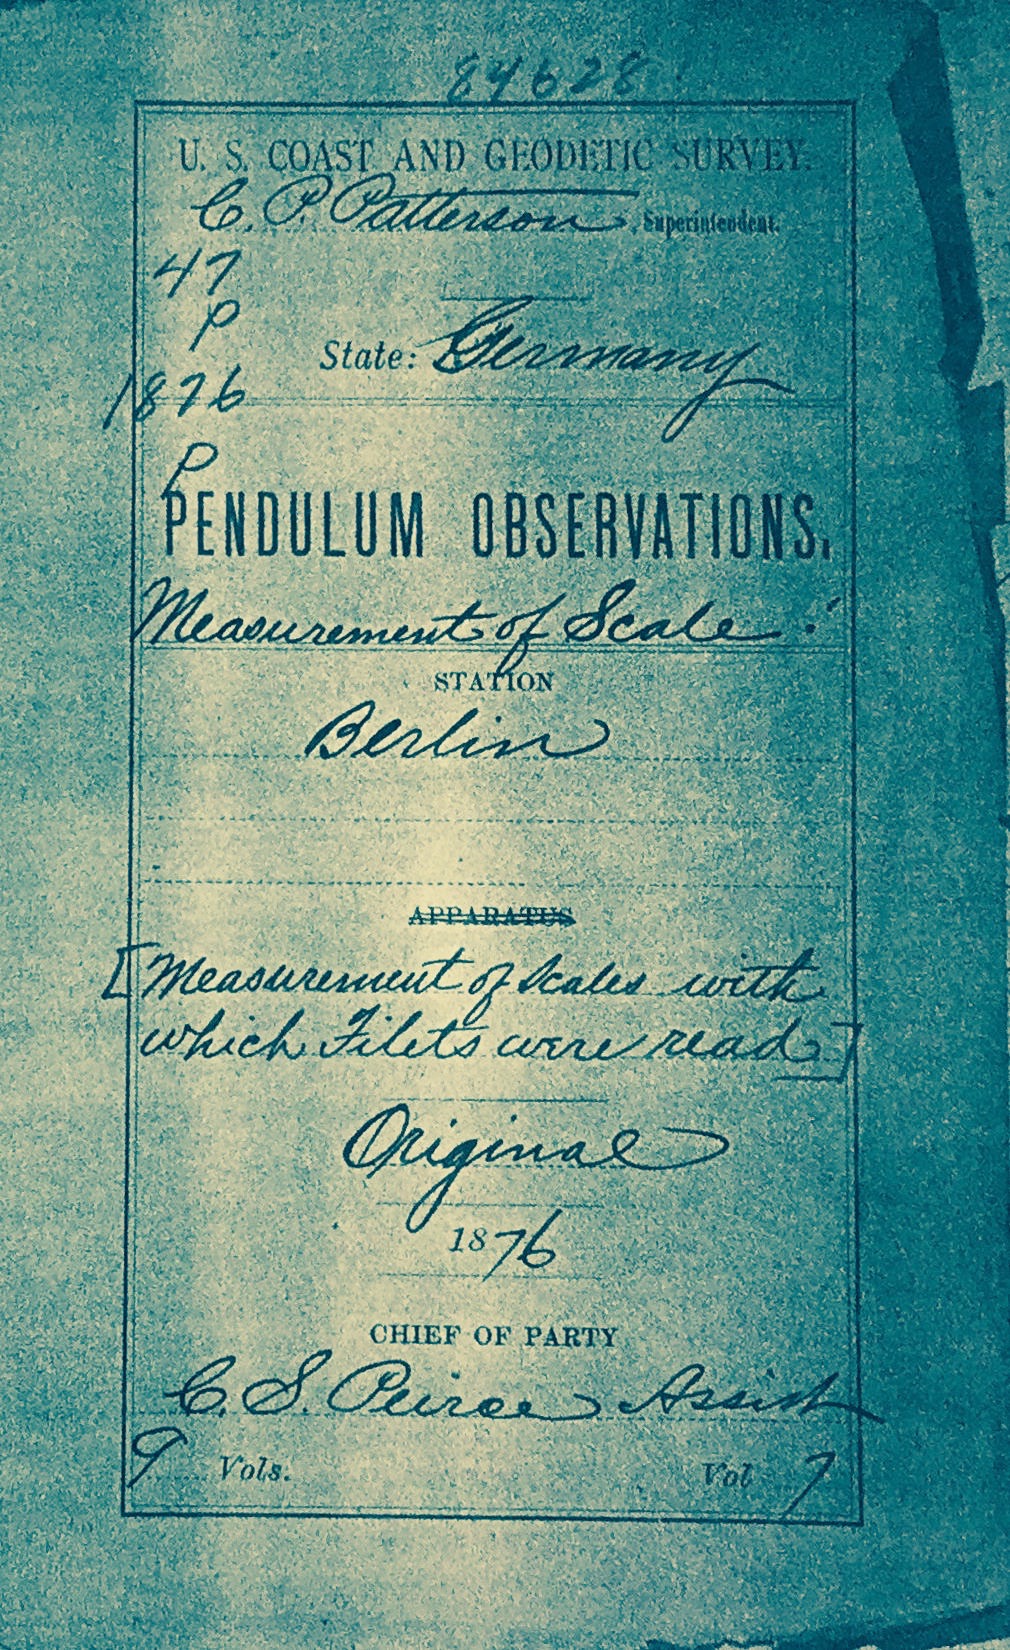 84628
U. S. COAST AND GEODETIC SURVEY.
C. P. Patterson, Superintendent.
47
P
State: Germany
1876
P
PENDULUM OBSERVATIONS.
Measurement of Scale.
STATION
Berlin
APPARATUS
[Measurement of Scales with
which Filets were read]
Original
1876
CHIEF OF PARTY
C. S. Peirce Assist
9 Vols. Vol 7